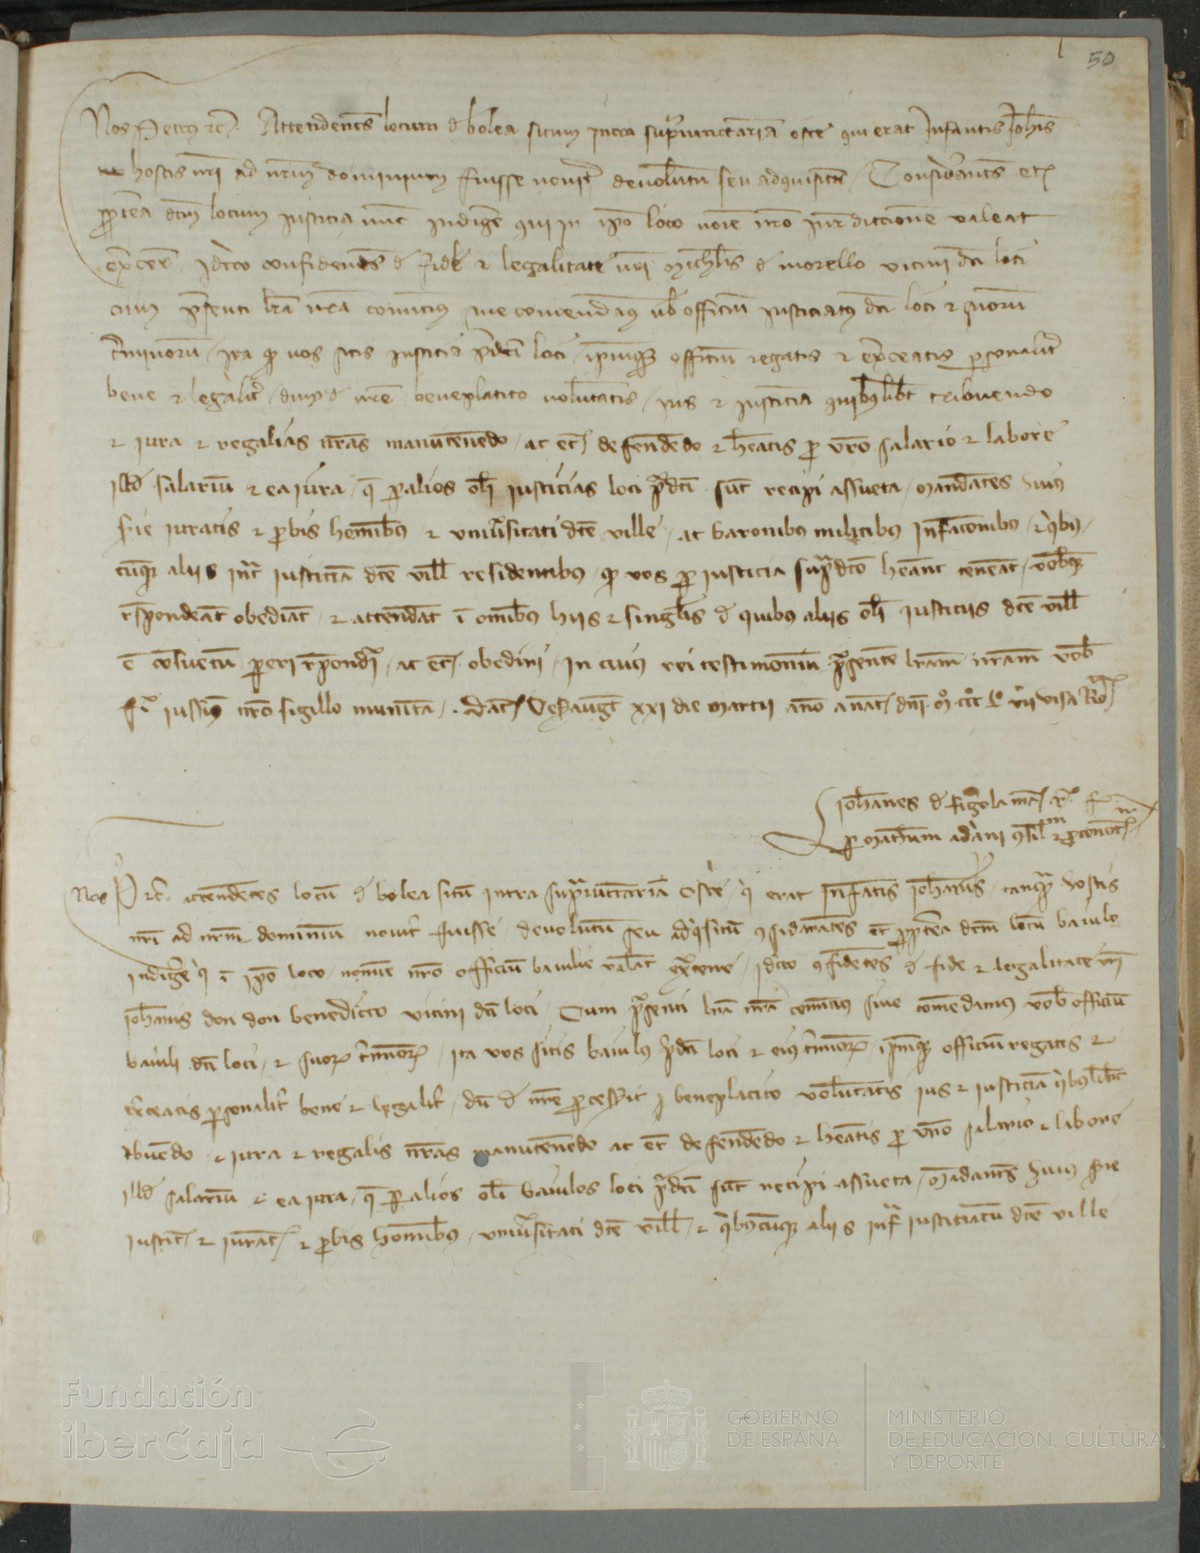 50
Nos Petrus etc. Attendentes locum de bolea situm intra supraiunctariam osce qui erat Infantis Johannis
hostis nostri ad nostrum dominium fuisse noviter devolutum seu adquisitum Considerantes etiam
propterea dictum locum justicia nunc indigere qui in ipso loco nomine nostro jurisdiccionem valeat
exercere Idcirco confidentes de fide et legalitate vestri Michaelis de morello vicini dicti loci
cum presenti littera nostra comitimus sive comendamus vobis officium justiciatus dicti loci et suorum
terminorum ita quod vos sitis justicia predicti loci ipsumque officium regatis et exerceatis personaliter
bene et legaliter dum de nostre beneplacito voluntatis jus et justiciam quibuslibet tribuendo
et jura et regalias nostras manutenendo ac etiam defendendo et habeatis pro vestro salario et labore
illud salarium et ea jura que per alios olim justicias loci predicti sunt recipi assueta mandantes
serie juratis et probis hominibus et universitati dicte ville ac baronibus militibus infancionibus et quibus
cumque aliis intra justiciam dicte ville residentibus quod vos pro justicia supradicto habeant teneant vobisque
respondeant obediant et attendant in omnibus hiis et singulis de quibus aliis olim justiciis dicte ville
est consuetum responderi ac etiam obediri In cuius rei testimonium presentem litteram nostram vobis
fieri iussimus nostro sigillo munitam Datum Cesarauguste XXI die marcii anno a nativitate domini Mº CCCº Lº VIII visa Ro
Johannes de
per Matheum adriani
Nos P etc. attendentes locum de bolea situm intra supraiunctariam Osce qui erat Infantis Johannis tanquam hostis
nostri ad nostrum dominium noviter fuisse devolutum seu adquisitum considerantes etiam propterea dictum locum baiulo
indigere qui in ipso loco nomine nostro officium baiulie valeat exercere Idcirco confidentes de fide et legalitate vestri
johannis don don benedicto vicini dicti loci Cum presenti littera nostra comitimus sive comendamus vobis officium
baiuli dicti loci et suorum terminorum ita vos sitis baiulus predicti loci et eius terminorum ipsumque officium regatis et
exerceatis personaliter bene et legaliter dum de nostre processerit beneplacito voluntatis jus et justiciam quibuslibet
tribuendo et jura et regalis nostras manutenendo ac etiam defendendo et habeatis pro vestro salario et labore
illud salarium et ea jura que per alios olim baiulos loci predicti sunt recipi assueta Mandantes huius serie
justicie et juratis et probis hominibus universitati dicte ville et quibuscumque aliis infra justiciatum dicte ville
Fundación
iberCaja
GOBIERNO
DE ESPAÑA
MINISTERIO
DE EDUCACIÓN, CULTURA
Y DEPORTE